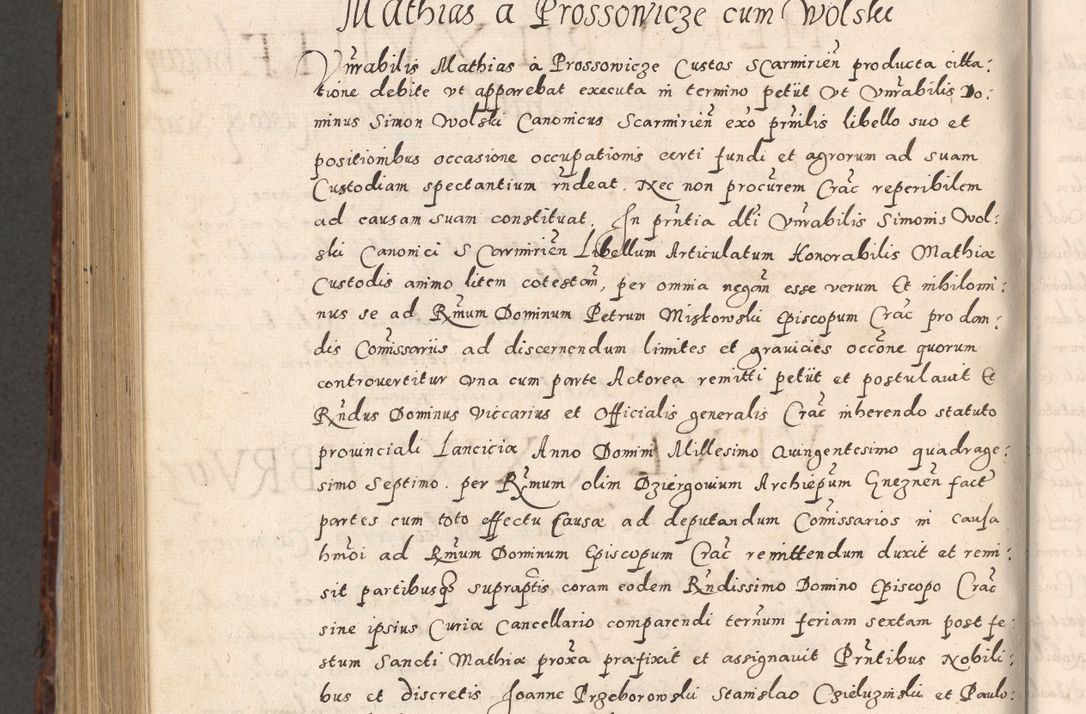 Mathias a Prossowicze cum Wolski
Vnrabilis Mathias à Prossowicze Custos Scarmirien̄ producta citta:
tione debite vt apparebat executa in termino petiit vt Vnrabilis Do:
minus Simon Wolski Canonicus Scarmirien̄ exo prmilis libello suo et
positionibus occasione occupationis certi fundi et agrorum ad suam
Custodiam spectantium rn̄deat. Nec non procurem Crac̄ reperibilem
ad causam suam constituat. In prn̄tia dti Vnrabilis Simonis Wol:
ski Canonici Scarmirien̄ Libellum Articulatum Honorabilis Mathiæ
Custodis animo litem cotestan̄, per omnia negan̄ esse verum Et nihilomi:
nus se ad Rm̄um Dominum Petrum Miskowski Episcopum Crac̄ pro dan:
dis Com̄issariis ad discernendum limites et granicies occōne quorum
controuertitur vna cum parte Actorea remitti petiit et postulauit Et
Rn̄dus Dominus Viccarius et Officialis generalis Crac̄ inherendo statuto
prouinciali Lanciciæ Anno Domini Millesimo Quingentesimo quadrage:
simo Septimo. per Rm̄um olim Dziergouium Archiepūm Gneznen̄ fact
partes cum toto effectu Causæ ad deputandum Com̄issarios in causa
hmōi ad Rm̄um Dominum Episcopum Crac̄ remittendum duxit et remi:
sit partibusq supraptis coram eodem Rn̄dissimo Domino Episcopo Crac̄
sine ipsius Curiæ Cancellario comparendi tern̄um feriam sextam post fe:
stum Sancti Mathiæ proxa præfixit et assignauit Prn̄tibus Nobili:
bus et discretis Joanne Przeborowski Stanislao Czieluzinski et Paulo: